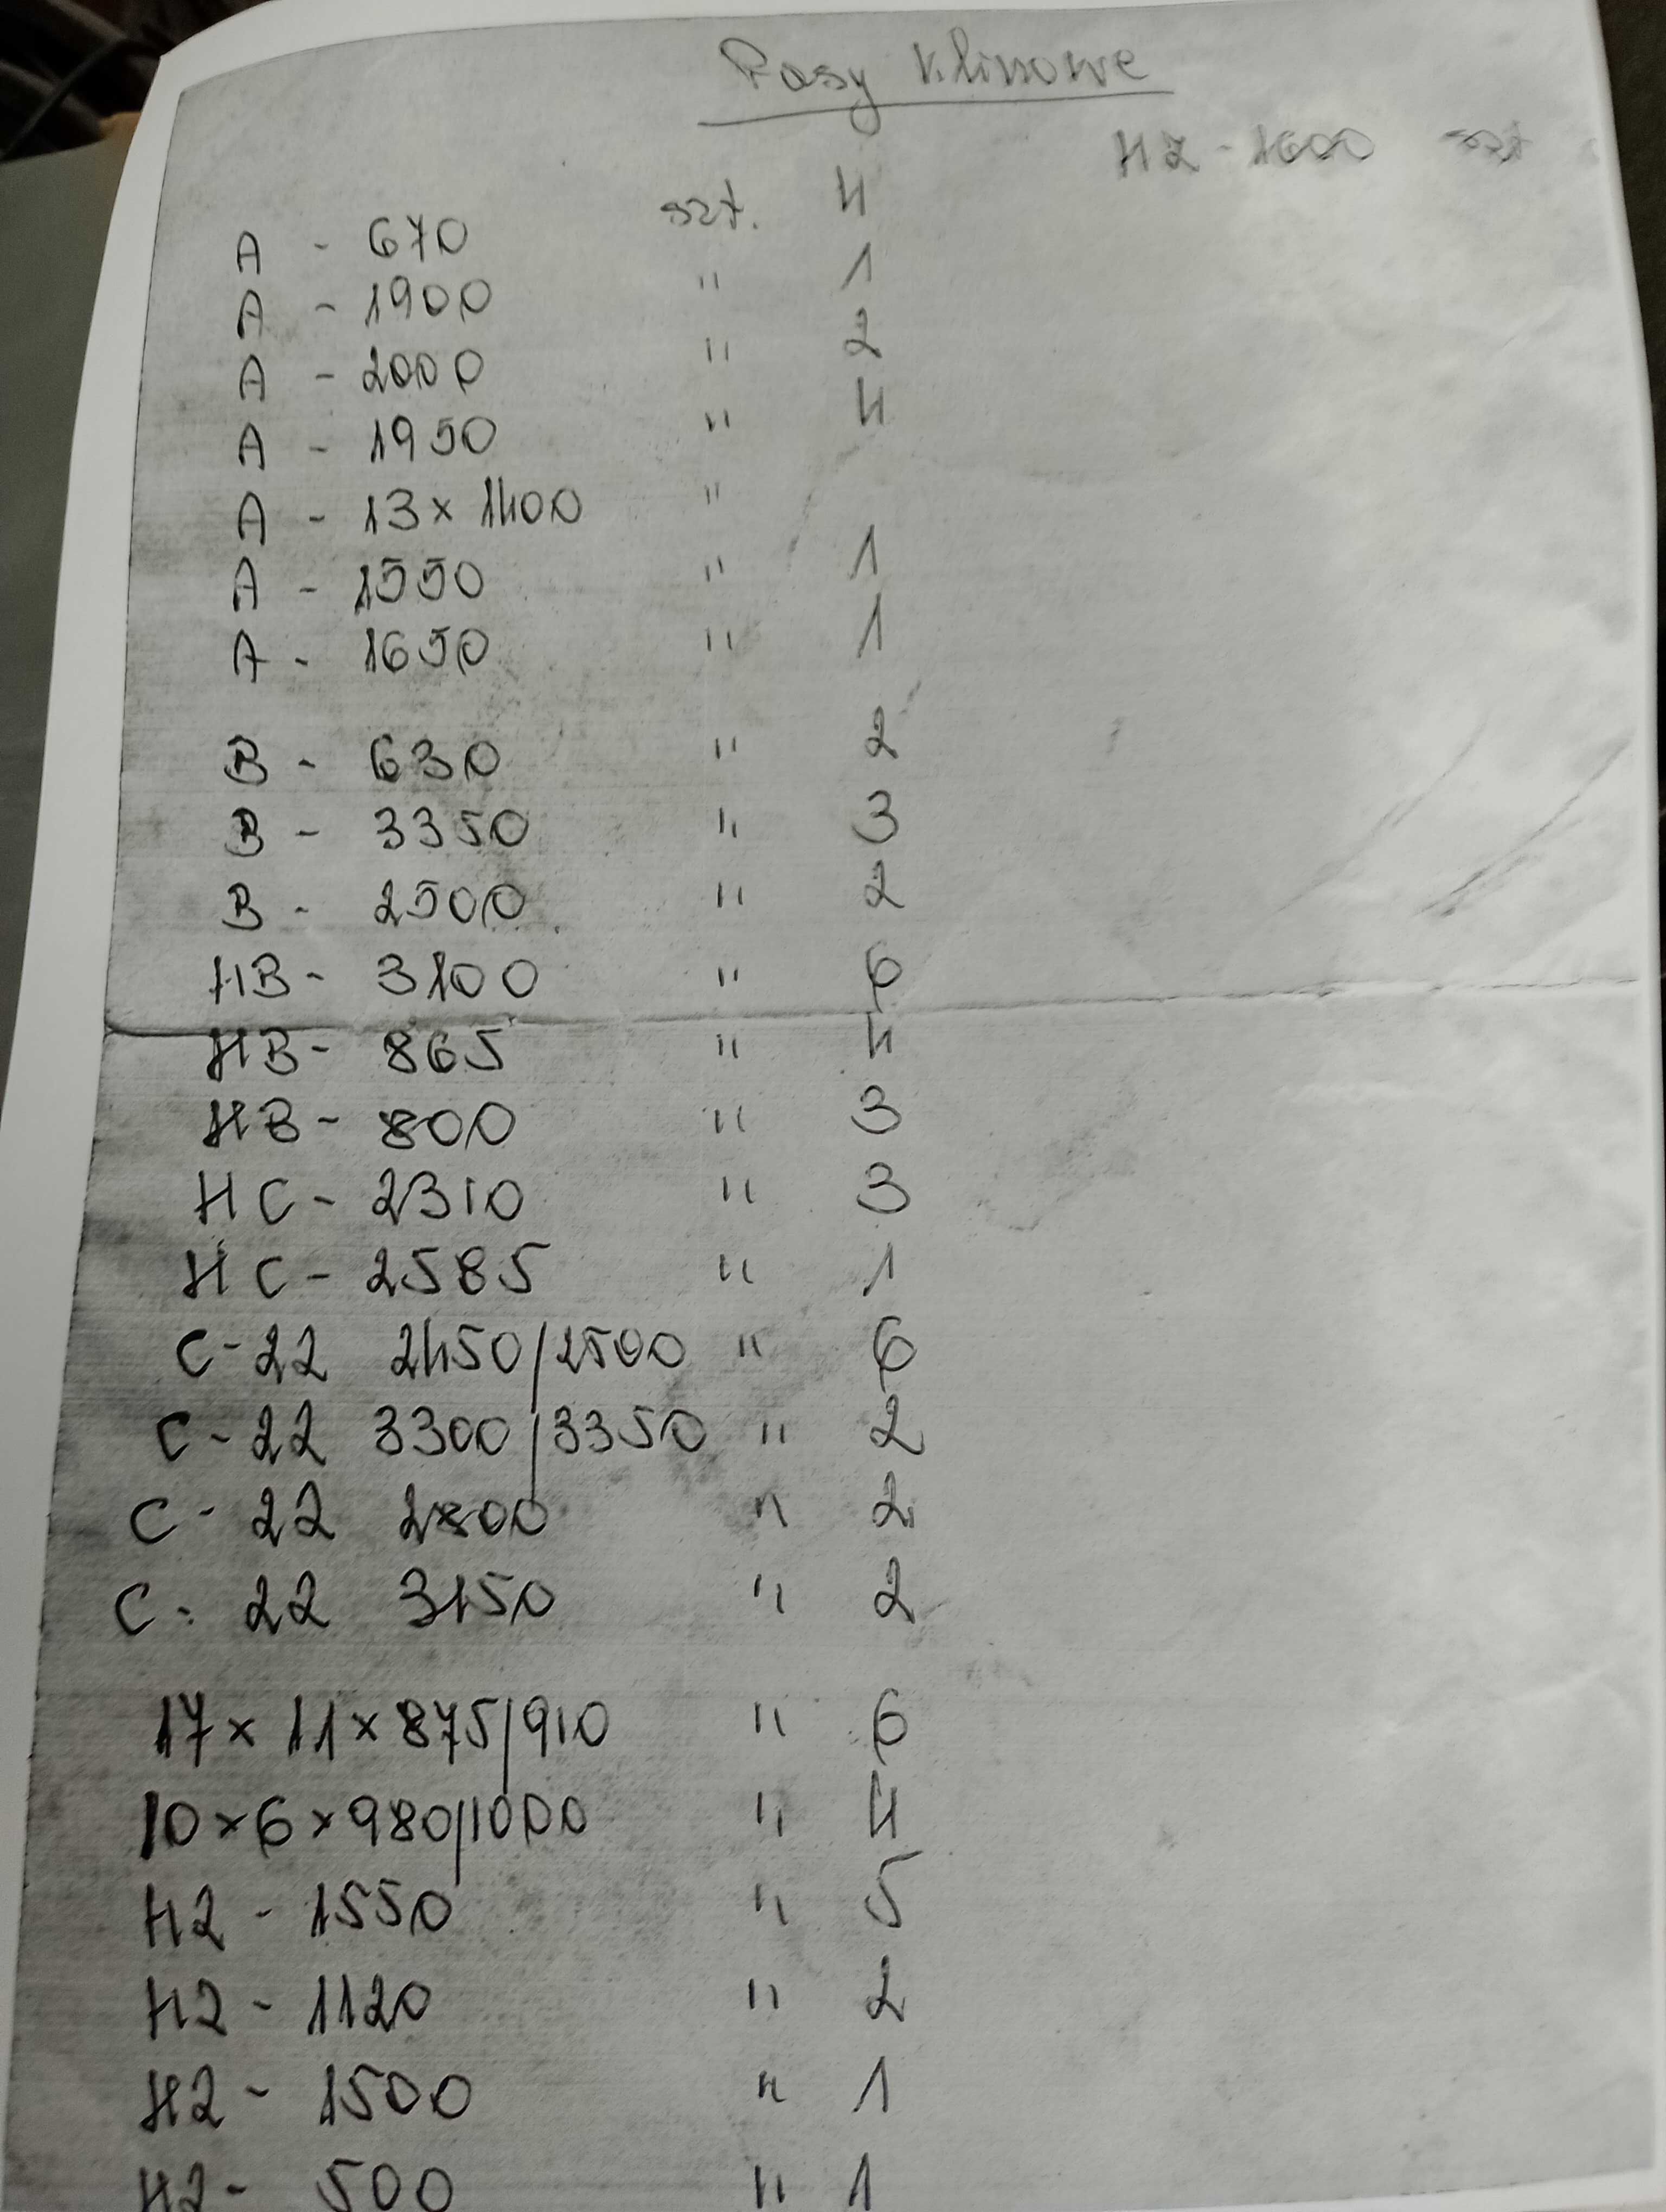 Pasy klinowe
HZ - 1600 szt
A - 670 szt. 4
A - 1900 " 1
A - 2000 " 2
A - 1950 " 4
A - 13 x 1400 "
A - 1550 " 1
A - 1650 " 1
B - 630 " 2
B - 3350 " 3
B - 2500 " 2
HB - 3100 " 6
HB - 865 " 4
HB - 800 " 3
HC - 2310 " 3
HC - 2585 " 1
C - 22 2450/2500 " 6
C - 22 3300/3350 " 2
C - 22 2800 " 2
C - 22 3150 " 2
17 x 11 x 875/910 " 6
10 x 6 x 980/1000 " 4
HZ - 1550 " 5
HZ - 1120 " 2
HZ - 1500 " 1
HZ - 500 " 1